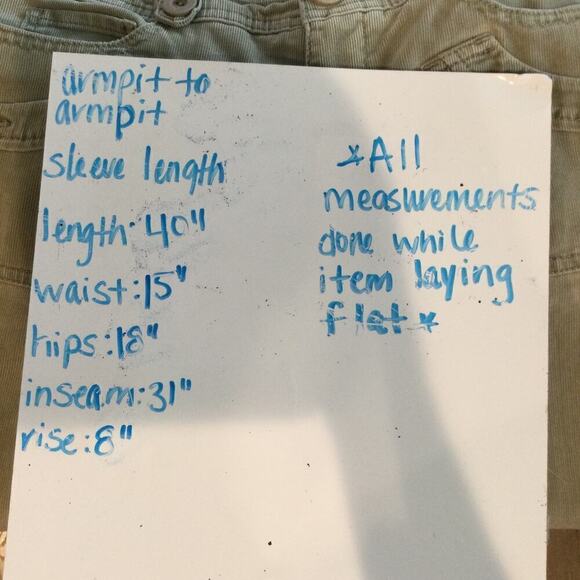 armpit to
armpit
sleeve length
length: 40"
waist: 15"
hips: 18"
inseam: 31"
rise: 8"
*All
measurements
done while
item laying
flat*